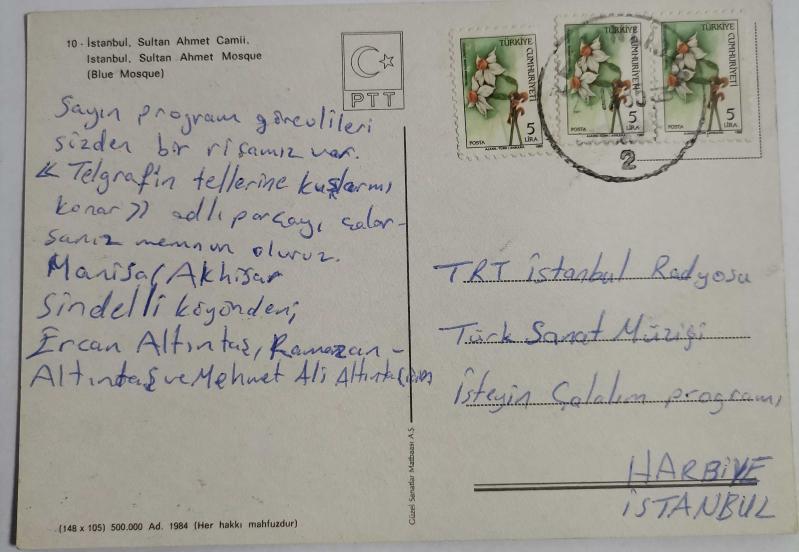 10 - İstanbul, Sultan Ahmet Camii.
Istanbul, Sultan Ahmet Mosque
(Blue Mosque)
PTT
TÜRKİYE
CUMHURİYETİ
5
LİRA
POSTA
TÜRKİYE
CUMHURİYETİ
5
LİRA
POSTA
TÜRKİYE
CUMHURİYETİ
5
LİRA
POSTA
2
Sayın program görevlileri
sizden bir ricamız var.
« Telgrafın tellerine kuşlarmı
konar » adlı parçayı çalar-
sanız memnun oluruz.
Manisa, Akhisar
Sindelli köyünden;
Ercan Altıntaş, Ramazan -
Altıntaş ve Mehmet Ali Altıntaş için
TRT İstanbul Radyosu
Türk Sanat Müziği
İsteyin Çalalım programı
HARBİYE
İSTANBUL
Güzel Sanatlar Matbaası A.Ş.
(148 x 105) 500.000 Ad. 1984 (Her hakkı mahfuzdur)